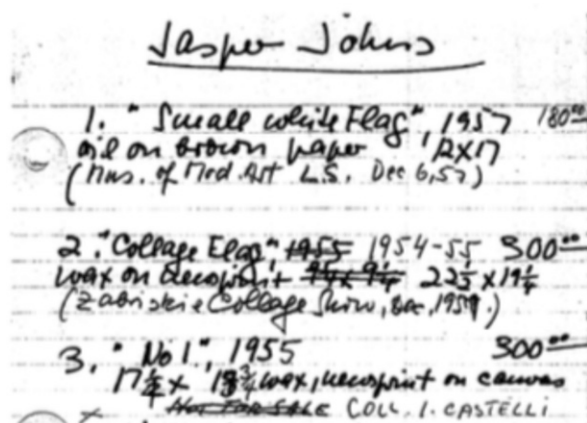 Jasper Johns
1. "Small white Flag", 1957 180⁰⁰
oil on brown paper 12X17
(Mus. of Mod. Art L.S. Dec 6, 57)
2. "Collage Flag", 1955 1954-55 300⁰⁰
wax on newsprint 22 x 19 1/4
(Zabriskie Collage Show, Dec, 195 .)
3. "No 1.", 1955 300⁰⁰
17 x 3/4 wax, newsprint on canvas
NOT FOR SALE COLL. I. CASTELLI